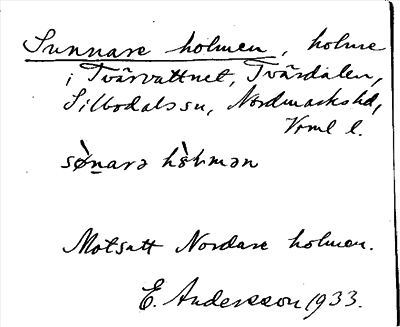 Sunnare holmen, holme
i Tvärvattnet, Tvärdalen,
Silbodals sn, Nordmarks hd,
Vrml l.
sø̀narə hòlmən
Motsatt Nordare holmen.
E. Andersson 1933.